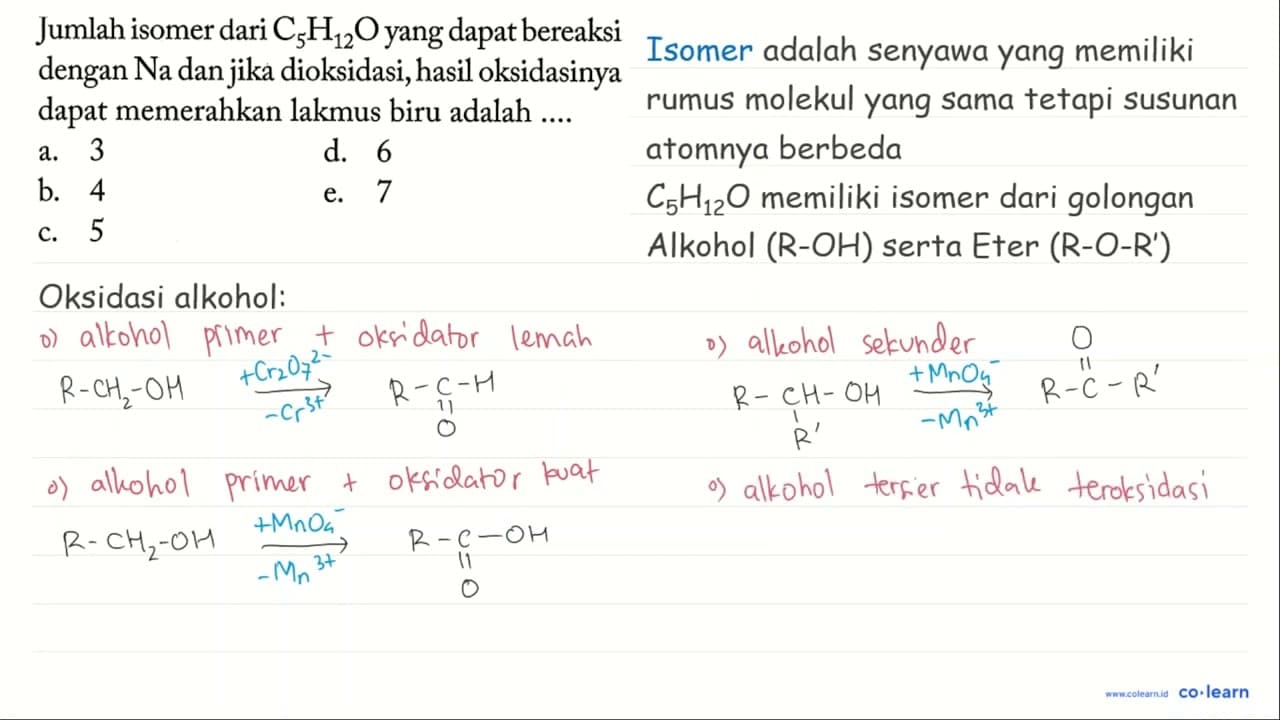 Jumlah isomer dari C₅H₁₂O yang dapat bereaksi
dengan Na dan jika dioksidasi, hasil oksidasinya
dapat memerahkan lakmus biru adalah ....
a. 3
b. 4
c. 5
d. 6
e. 7
Isomer adalah senyawa yang memiliki
rumus molekul yang sama tetapi susunan
atomnya berbeda
C₅H₁₂O memiliki isomer dari golongan
Alkohol (R-OH) serta Eter (R-O-R')
Oksidasi alkohol:
o) alkohol primer + oksidator lemah
R-CH₂-OH +Cr₂O₇²⁻ -Cr³⁺ → R-C-H
||
O
o) alkohol primer + oksidator kuat
R-CH₂-OH +MnO₄⁻ -Mn³⁺ → R-C-OH
||
O
o) alkohol sekunder
O
||
R-CH-OH +MnO₄⁻ -Mn³⁺ → R-C-R'
|
R'
o) alkohol tersier tidak teroksidasi
www.colearn.id co·learn